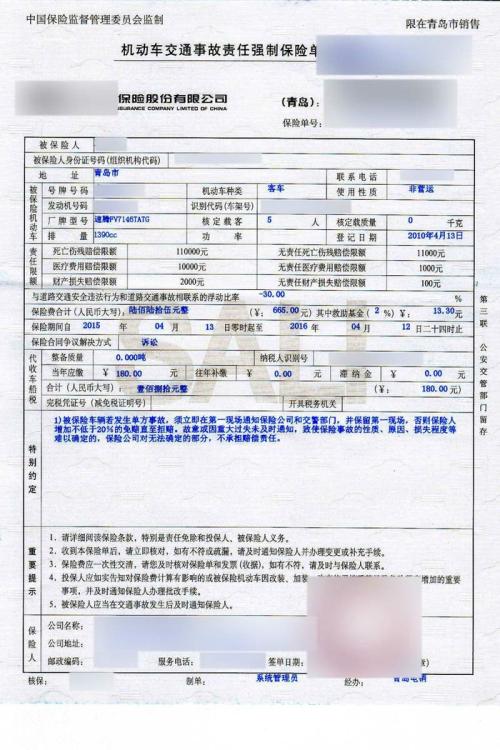 中国保险监督管理委员会监制
限在青岛市销售
机动车交通事故责任强制保险单
保险股份有限公司
INSURANCE COMPANY LIMITED OF CHINA
(青岛)：
保险单号：
被保险人
被保险人身份证号码(组织机构代码)
地 址 青岛市 联系电话
被保险机动车
号牌号码 机动车种类 客车 使用性质 非营运
发动机号 识别代码(车架号)
厂牌型号 速腾FV7146TATG 核定载客 5 人 核定载质量 0 千克
排 量 1390cc 功 率 登记日期 2010年4月13日
责任限额
死亡伤残赔偿限额 110000元 无责任死亡伤残赔偿限额 11000元
医疗费用赔偿限额 10000元 无责任医疗费用赔偿限额 1000元
财产损失赔偿限额 2000元 无责任财产损失赔偿限额 100元
与道路交通安全违法行为和道路交通事故相联系的浮动比率 -30.00 %
保险费合计(人民币大写)： 陆佰陆拾伍元整 (¥： 665.00 元) 其中救助基金( 2 %)¥： 13.30 元
保险期间自 2015 年 04 月 13 日零时起至 2016 年 04 月 12 日二十四时止
保险合同争议解决方式 诉讼
代收车船税
整备质量 0.000吨 纳税人识别号
当年应缴 ¥： 180.00 元 往年补缴 ¥： 0.00 元 滞纳金 ¥： 0.00 元
合计(人民币大写)： 壹佰捌拾元整 (¥： 180.00 元)
完税凭证号(减免税证明号) 开具税务机关
SALI
特别约定
1)被保险车辆若发生单方事故，须立即在第一现场通知保险公司和交警部门，并保留第一现场，否则保险人
增加不低于20%的免赔直至拒赔。故意或因重大过失未及时通知，致使保险事故的性质、原因、损失程度等
难以确定的，保险公司对无法确定的部分，不承担赔偿责任。
重要提示
1．请详细阅读保险条款，特别是责任免除和投保人、被保险人义务。
2．收到本保险单后，请立即核对，如有不符或疏漏，请及时通知保险人并办理变更或补充手续。
3．保险费应一次性交清，请您及时核对保险单和发票(收据)，如有不符，请及时与保险人联系。
4．投保人应如实告知对保险费计算有影响的或被保险机动车因改装、加装 增加的重要
事项，并及时通知保险人办理批改手续。
5．被保险人应当在交通事故发生后及时通知保险人。
保险人
公司名称：
公司地址：
邮政编码： 服务电话： 签单日期：
核保： 制单： 系统管理员 经办： 青岛电销
第三联 公安交管部门留存